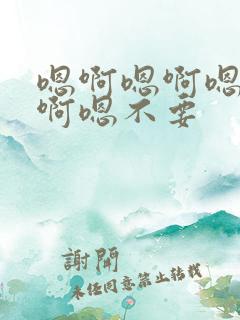 嗯啊嗯啊嗯
啊嗯不要
謝開
未经同意禁止转载